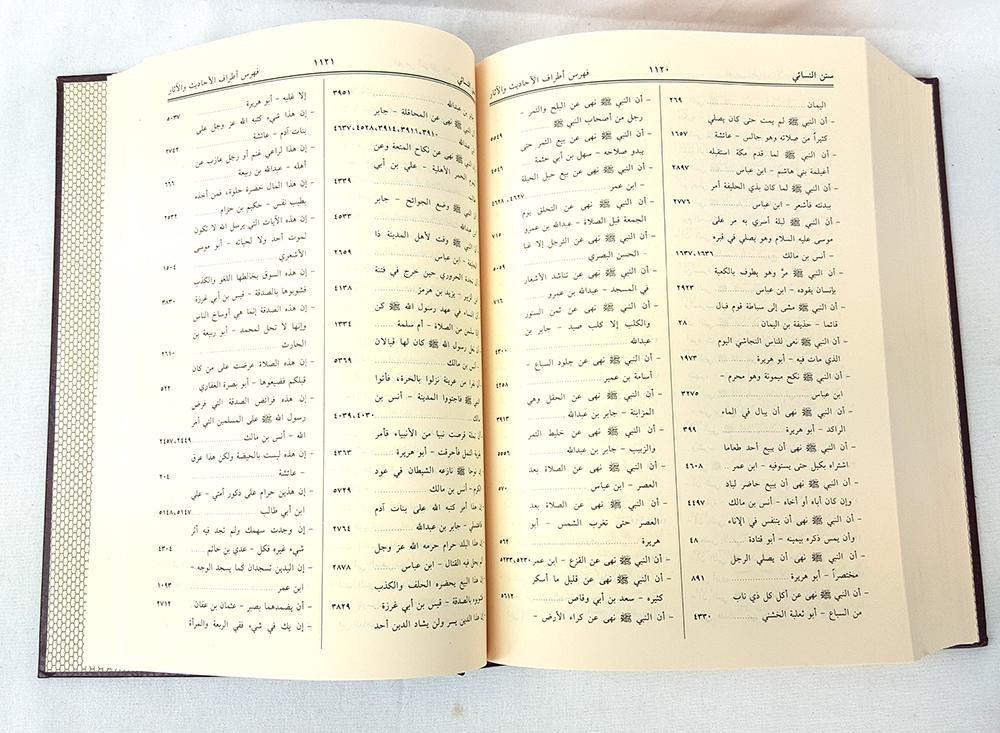 سنن النسائي
١١٢٠
فهرس أطراف الأحاديث والآثار
اليمان ٢٦٩
- أن النبي ﷺ لم يمت حتى كان يصلي
كثيراً من صلاته وهو جالس - عائشة ١٦٥٧
- أن النبي ﷺ لما قدم مكة استقبله
أغيلمة بني هاشم - ابن عباس ٢٨٩٧
- أن النبي ﷺ لما كان بذي الحليفة أمر
ببدنته فأشعر - ابن عباس ٢٧٧٦
- أن النبي ﷺ ليلة أسري به مر على
موسى عليه السلام وهو يصلي في قبره
- أنس بن مالك ١٦٣٧،١٦٣٦
- أن النبي ﷺ مرَّ وهو يطوف بالكعبة
بإنسان يقوده - ابن عباس ٢٩٢٣
- أن النبي ﷺ مشى إلى سباطة قوم فبال
قائما - حذيفة بن اليمان ٢٨
- أن النبي ﷺ نعى للناس النجاشي اليوم
الذي مات فيه - أبو هريرة ١٩٧٣
- أن النبي ﷺ نكح ميمونة وهو محرم -
ابن عباس ٣٢٧٥
- أن النبي ﷺ نهى أن يبال في الماء
الراكد - أبو هريرة ٣٩٩
- أن النبي ﷺ نهى أن يبيع أحد طعاما
اشتراه بكيل حتى يستوفيه - ابن عمر ٤٦٠٨
- أن النبي ﷺ نهى أن يبيع حاضر لباد
وإن كان أباه أو أخاه - أنس بن مالك ٤٤٩٧
- أن النبي ﷺ نهى أن يتنفس في الإناء
وأن يمس ذكره بيمينه - أبو قتادة ٤٨
- أن النبي ﷺ نهى أن يصلي الرجل
مختصراً - أبو هريرة ٨٩١
- أن النبي ﷺ نهى عن أكل كل ذي ناب
من السباع - أبو ثعلبة الخشني ٤٣٣٠
- أن النبي ﷺ نهى عن البلح والتمر -
رجل من أصحاب النبي ﷺ ٥٥٤٩
- أن النبي ﷺ نهى عن بيع الثمر حتى
يبدو صلاحه - سهل بن أبي حثمة ٤٥٤٦
- أن النبي ﷺ نهى عن بيع حبل الحبلة
- ابن عمر ٤٦٢٨،٤٦٢٧
- أن النبي ﷺ نهى عن التحلق يوم
الجمعة قبل الصلاة - عبدالله بن عمرو ٧١٥
- أن النبي ﷺ نهى عن الترجل إلا غبا
- الحسن البصري ٥٠٥٩
- أن النبي ﷺ نهى عن تناشد الأشعار
في المسجد - عبدالله بن عمرو ٧١٦
- أن النبي ﷺ نهى عن ثمن السنور
والكلب إلا كلب صيد - جابر بن
عبدالله ٤٣٠٠
- أن النبي ﷺ نهى عن جلود السباع -
أسامة بن عمير ٤٢٥٨
- أن النبي ﷺ نهى عن الحقل وهي
المزابنة - جابر بن عبدالله ٣٩١٣
- أن النبي ﷺ نهى عن خليط التمر
والزبيب - جابر بن عبدالله ٥٥٥٦
- أن النبي ﷺ نهى عن الصلاة بعد
العصر - ابن عباس ٥٧٠
- أن النبي ﷺ نهى عن الصلاة بعد
العصر حتى تغرب الشمس - أبو
هريرة ٥٦٢
- أن النبي ﷺ نهى عن القزع - ابن عمر ٥٢٣٣،٥٢٣٠
- أن النبي ﷺ نهى عن قليل ما أسكر
كثيره - سعد بن أبي وقاص ٥٦١٢
- أن النبي ﷺ نهى عن كراء الأرض -
النسائي
١١٢١
فهرس أطراف الأحاديث والآثار
بن عبدالله ٣٩٥١
النبي ﷺ نهى عن المحاقلة - جابر
عبدالله ٤٦٣٧،٤٥٢٨،٣٩١٤،٣٩١١،٣٩١٠
النبي ﷺ نهى عن نكاح المتعة وعن
الحمر الأهلية - علي بن أبي
٤٣٣٩
النبي ﷺ وضع الجوائح - جابر
عبدالله ٤٥٣٣
النبي ﷺ وقت لأهل المدينة ذا
- ابن عباس ٢٦٥٩
نجدة الحروري حين خرج في فتنة
الزبير - يزيد بن هرمز ٤١٣٨
النساء في عهد رسول الله ﷺ كن
سلمن من الصلاة - أم سلمة ١٣٣٤
نعل رسول الله ﷺ كان لها قبالان
بن مالك ٥٣٦٩
نفرا من عرينة نزلوا بالحرة، فأتوا
ﷺ فاجتووا المدينة - أنس بن
٤٠٣٩،٤٠٣٠
نملة قرصت نبيا من الأنبياء فأمر
النمل فأحرقت - أبو هريرة ٤٣٦٣
نوحا ﷺ نازعه الشيطان في عود
الكرم - أنس بن مالك ٥٧٢٩
هذا أمر كتبه الله على بنات آدم
- جابر بن عبدالله ٢٧٦٤
هذا البلد حرام حرمه الله عز وجل
يحل فيه القتال - ابن عباس ٢٨٧٨
هذا البيع يحضره الحلف والكذب
بالصدقة - قيس بن أبي غرزة ٣٨٢٩
هذا الدين يسر ولن يشاد الدين أحد
إلا غلبه - أبو هريرة ٥٠٣٧
- إن هذا شيء كتبه الله عز وجل على
بنات آدم - عائشة ٢٧٤٢
- إن هذا لراعي غنم أو رجل عازب عن
أهله - عبدالله بن ربيعة ٦٦٦
- إن هذا المال خضرة حلوة، فمن أخذه
بطيب نفس - حكيم بن حزام ٢٥٣٢
- إن هذه الآيات التي يرسل الله لا تكون
لموت أحد ولا لحياته - أبو موسى
الأشعري ١٥٠٤
- إن هذه السوق يخالطها اللغو والكذب
فشوبوها بالصدقة - قيس بن أبي غرزة ٣٨٣٠
- إن هذه الصدقة إنما هي أوساخ الناس
وإنها لا تحل لمحمد - أبو ربيعة بن
الحارث ٢٦١٠
- إن هذه الصلاة عرضت على من كان
قبلكم فضيعوها - أبو بصرة الغفاري ٥٢٢
- إن هذه فرائض الصدقة التي فرض
رسول الله ﷺ على المسلمين التي أمر
الله - أنس بن مالك ٢٤٥٧،٢٤٤٩
- إن هذه ليست بالحيضة ولكن هذا عرق
- عائشة ٢٠٤
- إن هذين حرام على ذكور أمتي - علي
بن أبي طالب ٥١٤٨،٥١٤٧
- إن وجدت سهمك ولم تجد فيه أثر
شيء غيره فكل - عدي بن حاتم ٤٣٠٤
- إن اليدين تسجدان كما يسجد الوجه -
ابن عمر ١٠٩٣
- أن يضمدهما بصبر - عثمان بن عفان ٢٧١٢
- إن يك في شيء ففي الربعة والمرأة